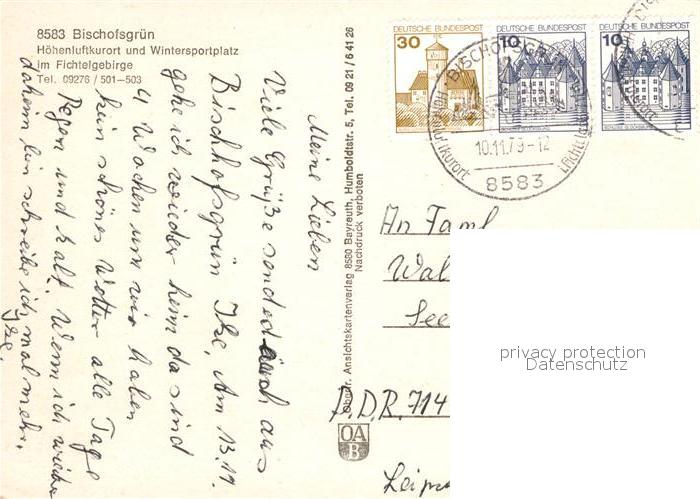 8583 Bischofsgrün
Höhenluftkurort und Wintersportplatz
im Fichtelgebirge
Tel. 09276 / 501–503
Meine Lieben
Viele Grüße sendet euch aus
Bischofsgrün Ilse, Am 13.11.
gehe ich wieder heim da sind
4 Wochen um wir haben
kein schönes Wetter alle Tage
Regen und kalt. Wenn ich wieder
daheim bin schreibe ich mal mehr.
Ilse.
Oberfr. Ansichtskartenverlag 8580 Bayreuth, Humboldtstr. 5, Tel. 09 21 / 6 41 26
Nachdruck verboten
OA
B
DEUTSCHE BUNDESPOST
30
DEUTSCHE BUNDESPOST
10
DEUTSCHE BUNDESPOST
10
BISCHOFSGRÜN
10.11.79-12
8583
An Faml
Wal
See
D.D.R. 714
Leipz
privacy protection
Datenschutz